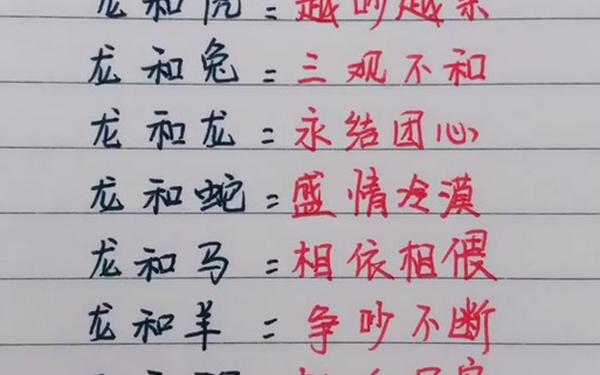 龙和虎=越吵越亲
龙和兔=三观不和
龙和龙=永结团心
龙和蛇=盛情冷漠
龙和马=相依相偎
龙和羊=争吵不断